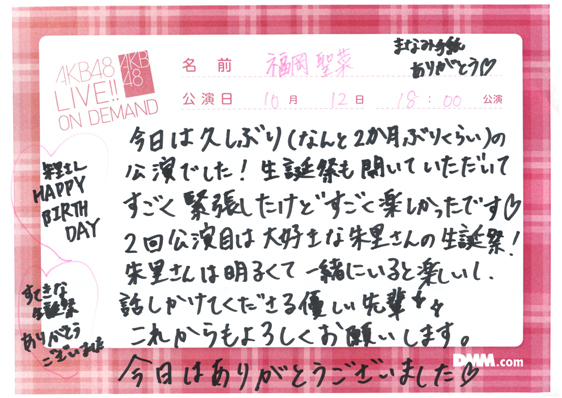 AKB48
LIVE!!
ON DEMAND
AKB
48
名前 福岡聖菜
まなみ手紙
ありがとう♡
公演日 10月 12日 18:00 公演
今日は久しぶり(なんと2か月ぶりくらい)の
公演でした!生誕祭も開いていただいて
すごく緊張したけどすごく楽しかったです♡
2回公演目は大好きな朱里さんの生誕祭!
朱里さんは明るくて一緒にいると楽しいし、
話しかけてくださる優しい先輩
これからもよろしくお願いします。
今日はありがとうございました♡
朱里さん
HAPPY
BIRTH
DAY
すてきな
生誕祭
ありがとう
ございました
DMM.com